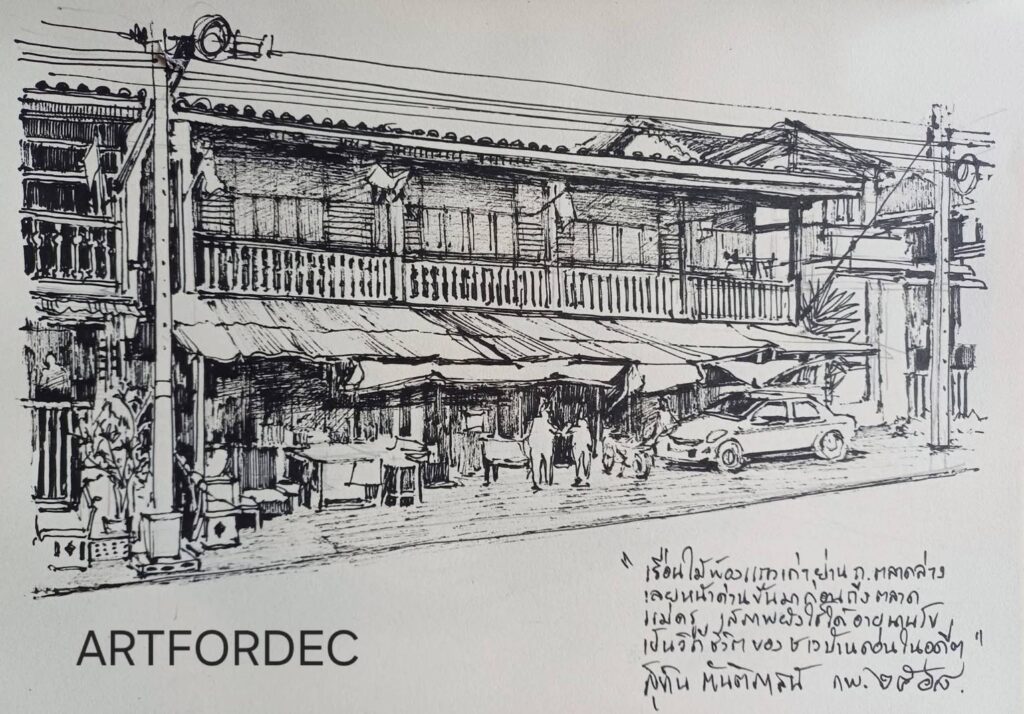 "เรือนไม้ห้องแถวเก่าย่าน ถ.ตลาดล่าง
เลยหน้าด่านขึ้นมาก่อนถึงตลาด
แม่ครู สภาพยังใช้ได้ อายุนานโข
เป็นวิถีชีวิตของชาวบ้านตอนในอดีต"
สุทิน ตันติภาสน์ กพ. ๒๕๖๘.
ARTFORDEC